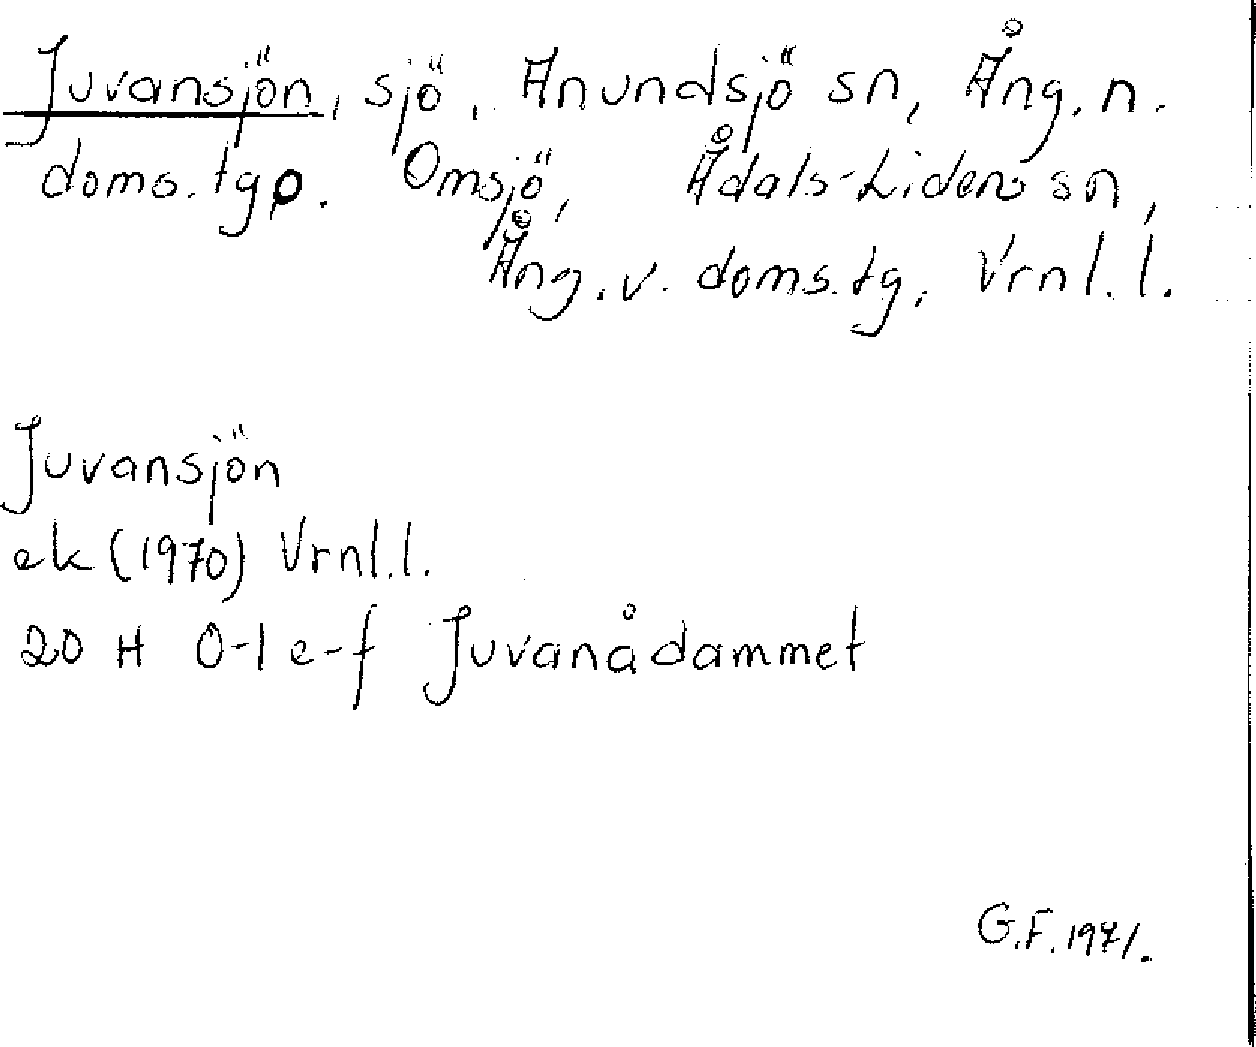 Juvansjön, sjö, Anundsjö sn, Ång. n.
doms. tg o. Omsjö, Ådals-Lidens sn,
Ång. v. doms. tg, Vrnl. l.
Juvansjön
ek (1970) Vrnl. l.
20 H 0-1 e-f Juvanådammet
G.F. 1971.